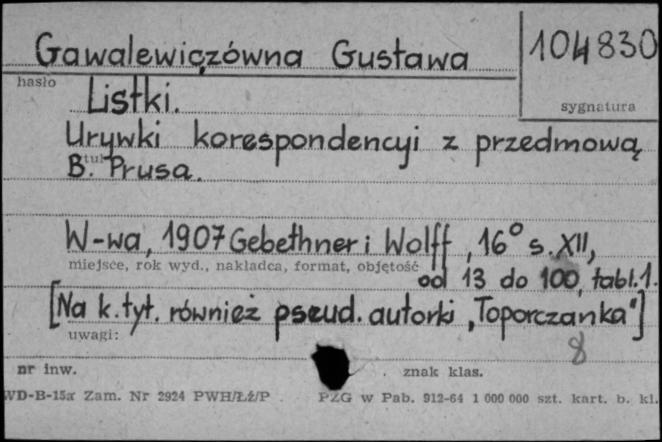 Gawalewiczówna Gustawa
104830
hasło
sygnatura
Listki.
Urywki korespondencyi z przedmową
B. Prusa.
W-wa, 1907 Gebethner i Wolff, 16° s. XII,
miejsce, rok wyd., nakładca, format, objętość
od 13 do 100, tabl. 1.
[Na k. tyt. również pseud. autorki „Toporczanka"]
uwagi:
8
nr inw.
znak klas.
WD-B-15a Zam. Nr 2924 PWH/Łź/P
PZG w Pab. 912-64 1 000 000 szt. kart. b. kl.